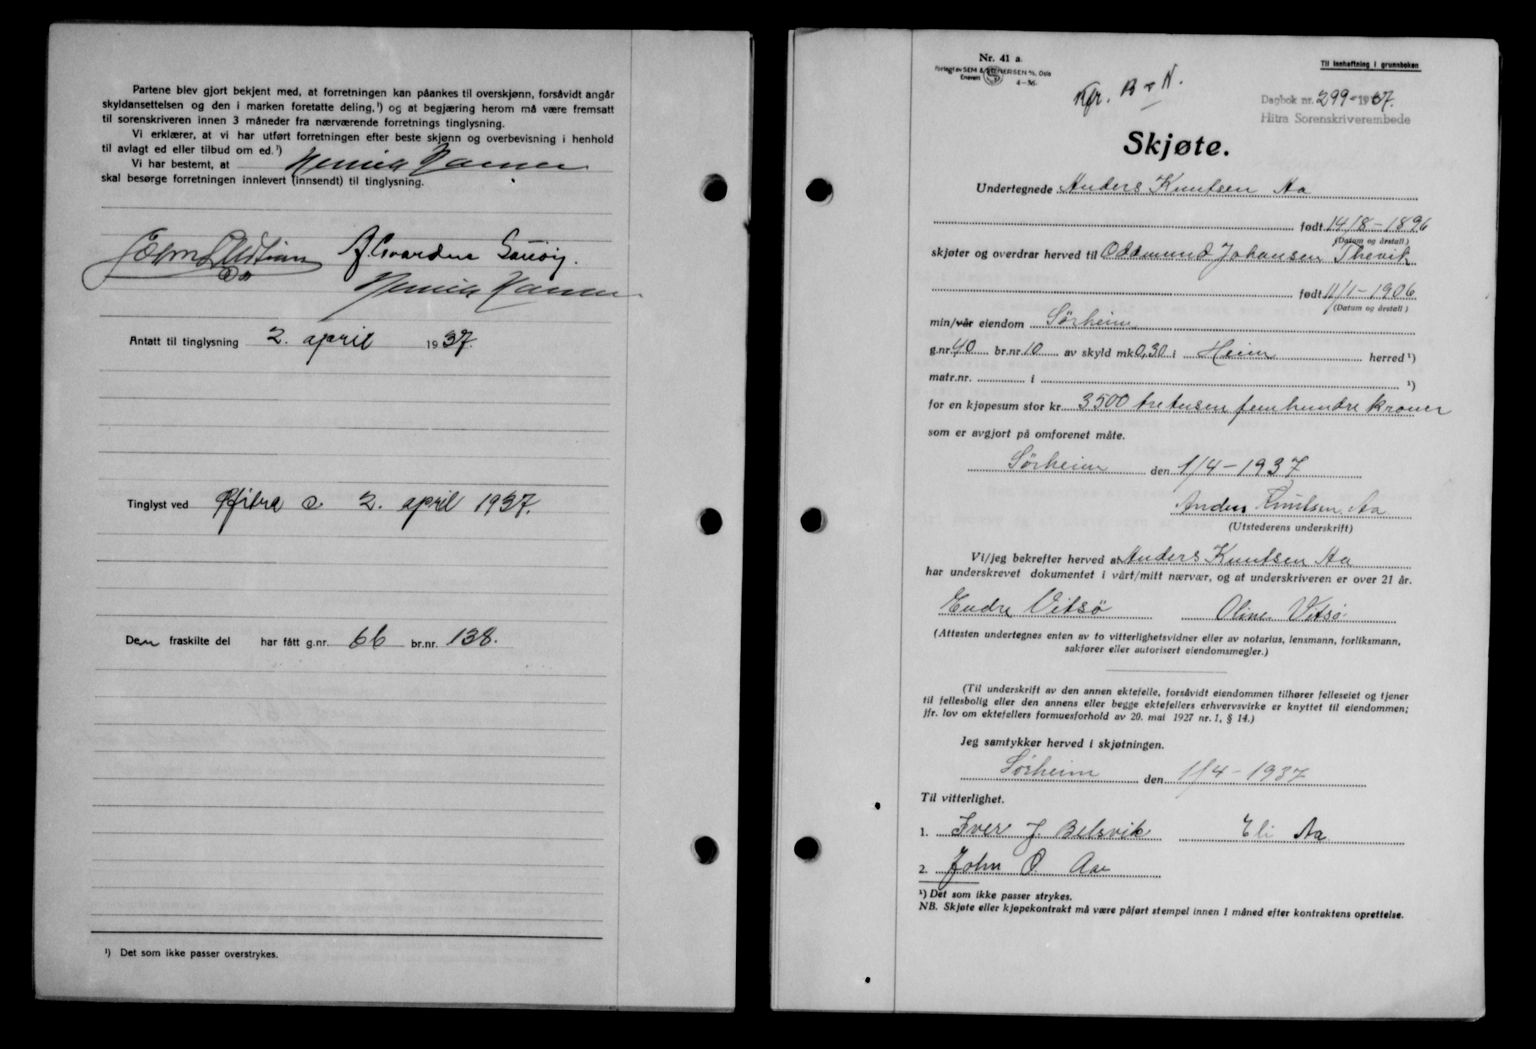 Partene blev gjort bekjent med, at forretningen kan påankes til overskjønn, forsåvidt angår
skyldansettelsen og den i marken foretatte deling,¹) og at begjæring herom må være fremsatt
til sorenskriveren innen 3 måneder fra nærværende forretnings tinglysning.
Vi erklærer, at vi har utført forretningen efter beste skjønn og overbevisning i henhold
til avlagt ed eller tilbud om ed.¹)
Vi har bestemt, at
skal besørge forretningen innlevert (innsendt) til tinglysning.
Antatt til tinglysning 2. april 1937.
Tinglyst ved Hitra 2. april 1937.
Den fraskilte del har fått g.nr. 66 br.nr. 138.
¹) Det som ikke passer overstrykes.
Nr. 41 a.
Forlagt av SEM & STENERSEN A/S, Oslo
Enerett 4-36
Til innheftning i grunnboken
Kfr. B + N.
Dagbok nr. 299 - 1937.
Hitra Sorenskriverembede
Skjøte.
Undertegnede Anders Knutsen Aa
født 14/8 - 1896
(Datum og årstall)
skjøter og overdrar herved til Oddmund Johansen Thevik
født 11/1 - 1906
(Datum og årstall)
min/vår eiendom Sörheim
g.nr. 40 br.nr. 10 av skyld mk 0,30 i Heim herred ¹)
matr.nr. i ¹)
for en kjøpesum stor kr. 3500 tretusen femhundre kroner
som er avgjort på omforenet måte.
Sörheim den 1/4 - 1937
Anders Knutsen Aa
(Utstederens underskrift)
Vi/jeg bekrefter herved at Anders Knutsen Aa
har underskrevet dokumentet i vårt/mitt nærvær, og at underskriveren er over 21 år.
Endre Vitsö Oline Vitsö
(Attesten undertegnes enten av to vitterlighetsvidner eller av notarius, lensmann, forliksmann,
sakfører eller autorisert eiendomsmegler.)
(Til underskrift av den annen ektefelle, forsåvidt eiendommen tilhører felleseiet og tjener
til fellesbolig eller den annens eller begge ektefellers erhvervsvirke er knyttet til eiendommen;
jfr. lov om ektefellers formuesforhold av 20. mai 1927 nr. 1, § 14.)
Jeg samtykker herved i skjøtningen.
Sörheim den 1/4 - 1937
Til vitterlighet.
1. Iver J. Belsvik Eli Aa
2. John O. Aae
¹) Det som ikke passer strykes.
NB. Skjøte eller kjøpekontrakt må være påført stempel innen 1 måned efter kontraktens oprettelse.